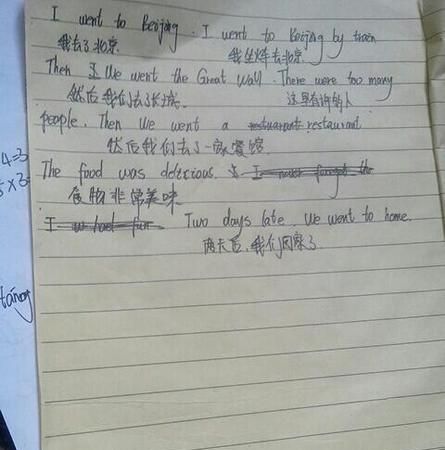 I went to Beijing. I went to Beijing by train
我去了北京 我坐火车去北京
Then I We went the Great Wall. There were too many
然后我们去了长城. 这里有许多人
people. Then We went a restuarant restaurant
然后我们去了一家宾馆
The food was delicious. I must forget the
食物非常美味
I we had fun Two days late, We went to home.
两天后,我们回家了
4=3
5×3